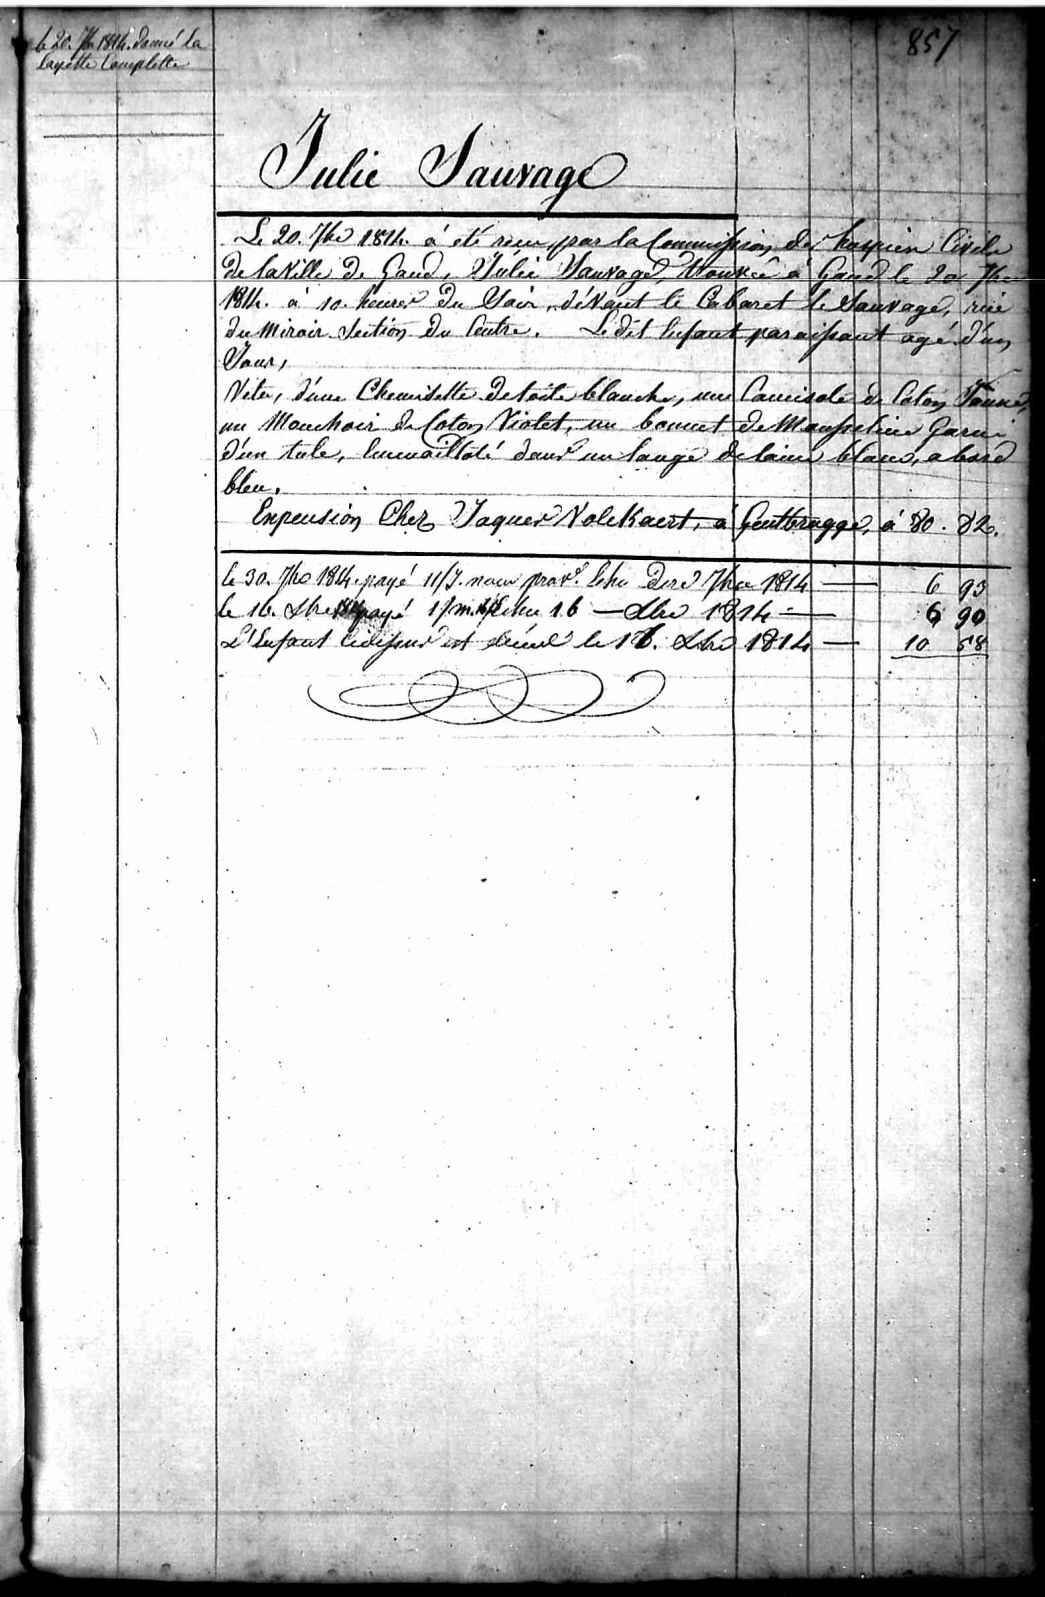 le 20. 7bre 1814. donné la
Layette Complette
857
Julie Sauvage
Le 20. 7bre 1814. a été reçu, par la Commission des hospices Civils
de la Ville de Gand, Julie Sauvage, trouvée à Gand le 20 7bre
1814. à 10. heures du Soir, dévant le Cabaret le Sauvage, rue
du Miroir Section du Centre. Le dit Enfant paraissant agé d'un
Jour,
Vetu, d'une Chemisette de toile blanche, une Camisole de Coton Jaune,
un Mouchoir de Coton Violet, un bonnet de Mousseline Garni
d'un tule, Emmailloté dans un lange de laine blanc, a bord
bleu.
Enpension Chez Jaques Volckaert, à Gentbrugge, à 80. 82.
le 30. 7bre 1814. payé 11/J. nour prov.s Echu Dere 7bre 1814 — 6 93
le 16. Xbre payé Echu 16 — Xbre 1814 — 6 90
L'Enfant cidessus est décédé le 16. Xbre 1814 — 10 58